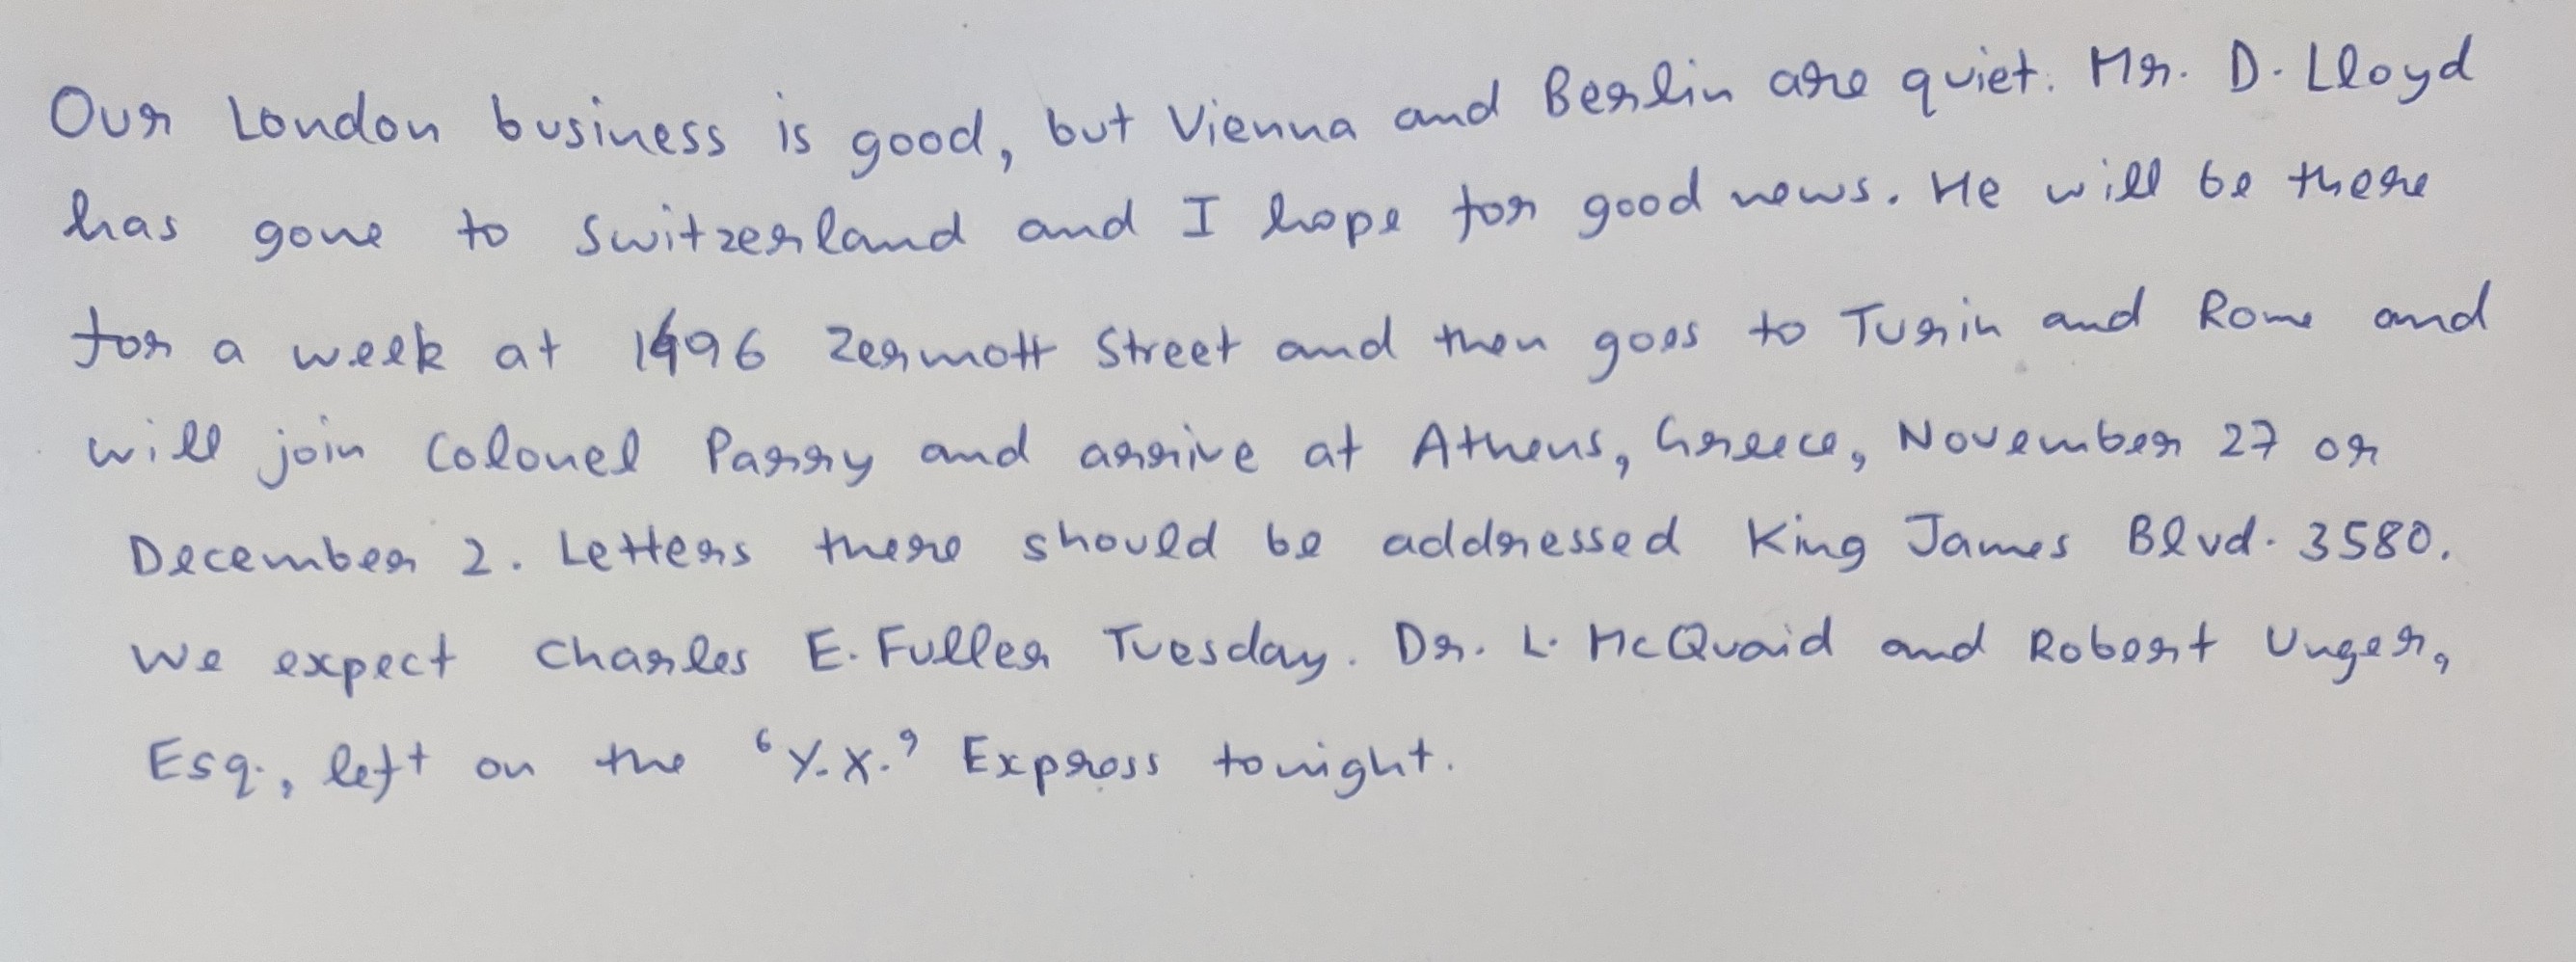 Our London business is good, but Vienna and Berlin are quiet. Mr. D. Lloyd
has gone to Switzerland and I hope for good news. He will be there
for a week at 1496 Zermott Street and then goes to Turin and Rome and
will join Colonel Parry and arrive at Athens, Greece, November 27 or
December 2. Letters there should be addressed King James Blvd. 3580.
We expect Charles E. Fuller Tuesday. Dr. L. McQuaid and Robert Unger,
Esq., left on the 'Y.X.' Express tonight.